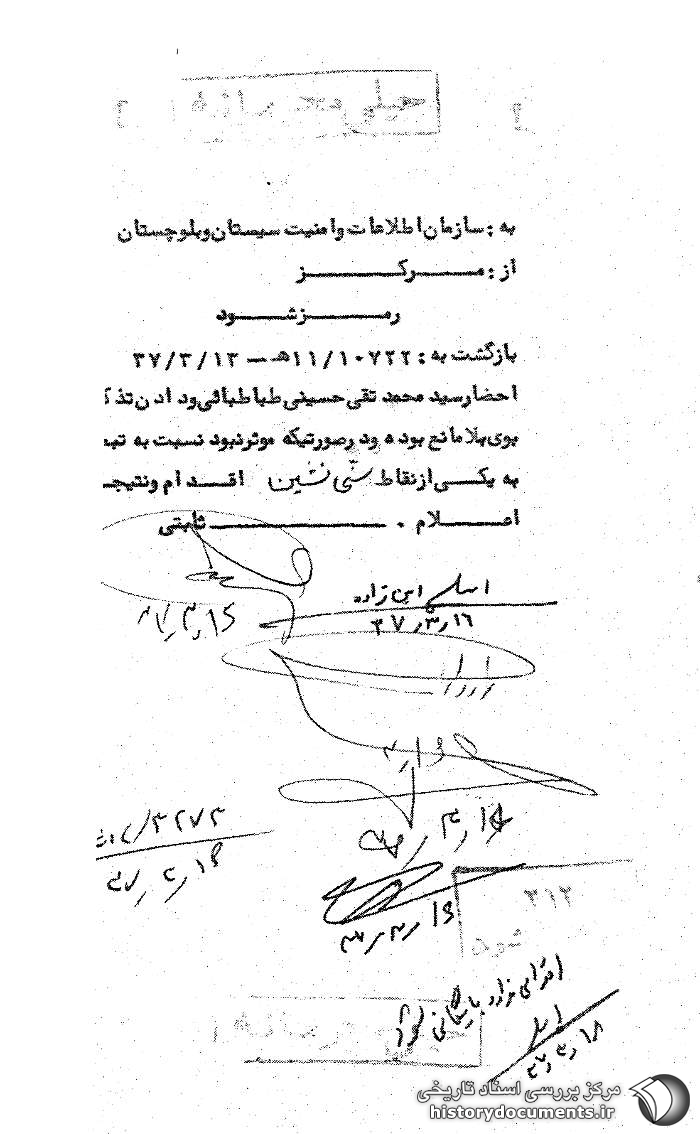 خیلی محرمانه
به : سازمان اطلاعات و امنیت سیستان و بلوچستان
از : مرکز
رمز شود
بازگشت به : ۱۱/۱۰۷۲۲هـ – ۳۷/۳/۱۳
احضار سید محمد تقی حسینی طباطبائی و دادن تذک
بوی بلامانع بوده و در صورتیکه موثر نبود نسبت به تبع
به یکی از نقاط سنی نشین اقدام و نتیجه
اعلام . ثابتی
امین زاده
۳۷/۳/۱۶
۳۷/۳/۱۶
۳/۱۶
۳/۱۶
۳۲۷۳
۳۷/۳/۱۶
۳۷/۳/۱۶
۳۱۲
شود
بایگانی شود
۳۷/۳/۱۸
مرکز بررسی اسناد تاریخی
historydocuments.ir